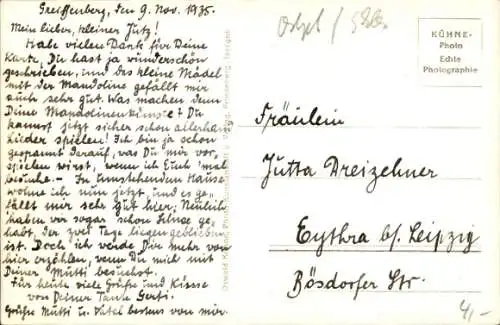 Greiffenberg, den 9. Nov. 1935.
Mein lieber, kleiner Jutz!
Habe vielen Dank für Deine
Karte, Du hast ja wunderschön
geschrieben, und das kleine Mädel
mit der Mandoline gefällt mir
auch sehr gut. Was machen denn
Deine Mandolinenkünste? Du
kannst jetzt sicher schon allerhand
Lieder spielen! Ich bin ja schon
gespannt darauf, was Du mir vor-
spielen wirst, wenn ich Euch 'mal
besuche. – In umstehendem Hause
wohne ich nun jetzt, und es ge-
fällt mir sehr gut hier; Neulich
haben wir sogar schon Schnee ge-
habt, der zwei Tage liegen geblieben
ist. Doch ich werde Dir mehr von
hier erzählen, wenn Du mich mit
Deiner Mutti besuchst.
Für heute viele Grüße und Küsse
von Deiner Tante Gerti.
Grüße Mutti u. Vatel bestens von mir.
KÜHNE-
Photo
Echte
Photographie
Fräulein
Jutta Dreizehner
Eythra b/ Leipzig
Bösdorfer Str.
4,-